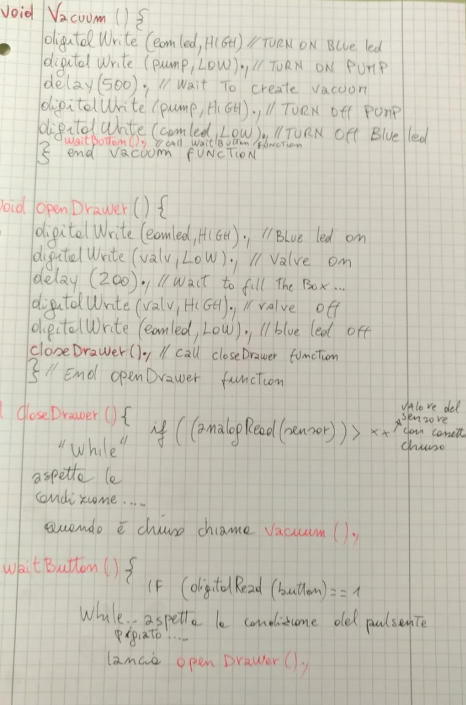 void Vacuum () {
digitalWrite (comled, HIGH) // TURN ON Blue led
digitalWrite (pump, LOW); // TURN ON PUMP
delay (500); // Wait To create vacuon
digitalWrite (pump, HIGH); // TURN Off PUMP
digitalWrite (comled, LOW); // TURN Off Blue led
waitBottom(); // call Wait Button function
} end Vacuum FUNCTION
void openDrawer () {
digitalWrite (comled, HIGH); // Blue led on
digitalWrite (valv, LOW); // Valve on
delay (200); // Wait to fill The Box...
digitalWrite (valv, HIGH); // valve off
digitalWrite (comled, LOW); // blue led off
closeDrawer(); // call closeDrawer function
} // End openDrawer function
closeDrawer () { if ((analogRead (sensor)) > xx
valore del
sensore
con cassetto
chiuso
"While"
aspetta la
condizione....
quando è chiuso chiama Vacuum ();
waitButton () {
IF (digitalRead (button) == 1
While.. aspetta la condizione del pulsante
pigiato....
lancia openDrawer();